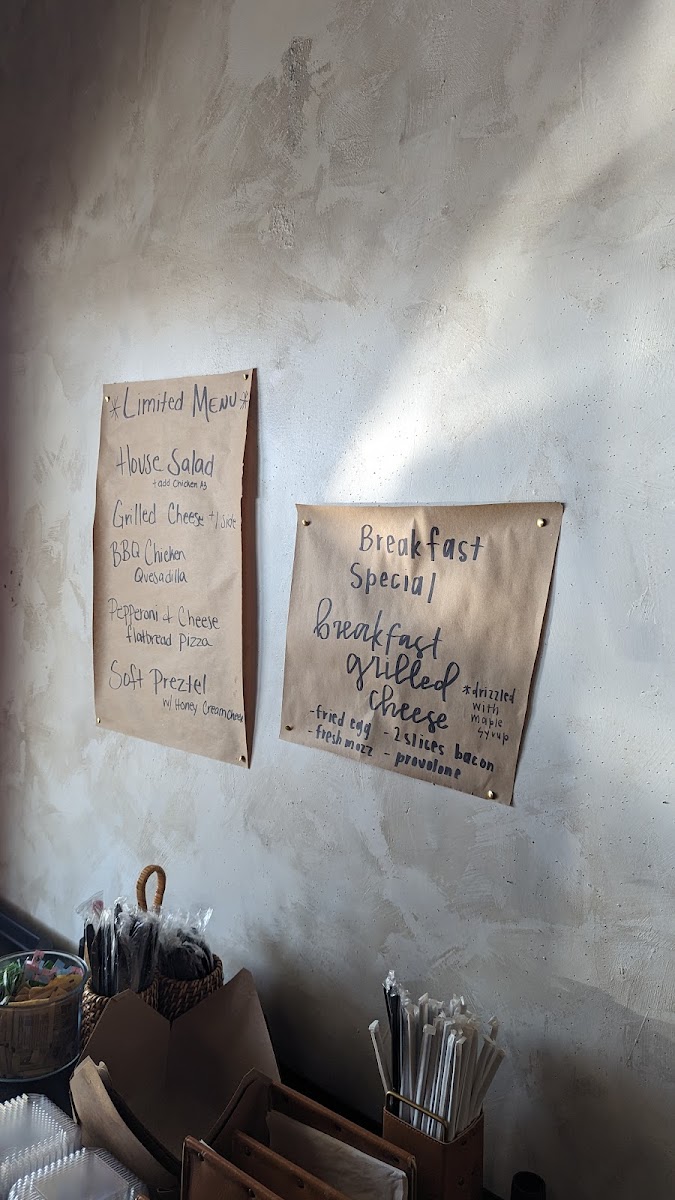 *Limited Menu*
House Salad
+ add Chicken $3
Grilled Cheese +/ side
BBQ Chicken
Quesadilla
Pepperoni & Cheese
flatbread pizza
Soft Preztel
w/ Honey Cream Cheese
Breakfast
Special
breakfast
grilled
cheese
*drizzled
with
maple
syrup
- fried egg - 2 slices bacon
- fresh mozz - provolone